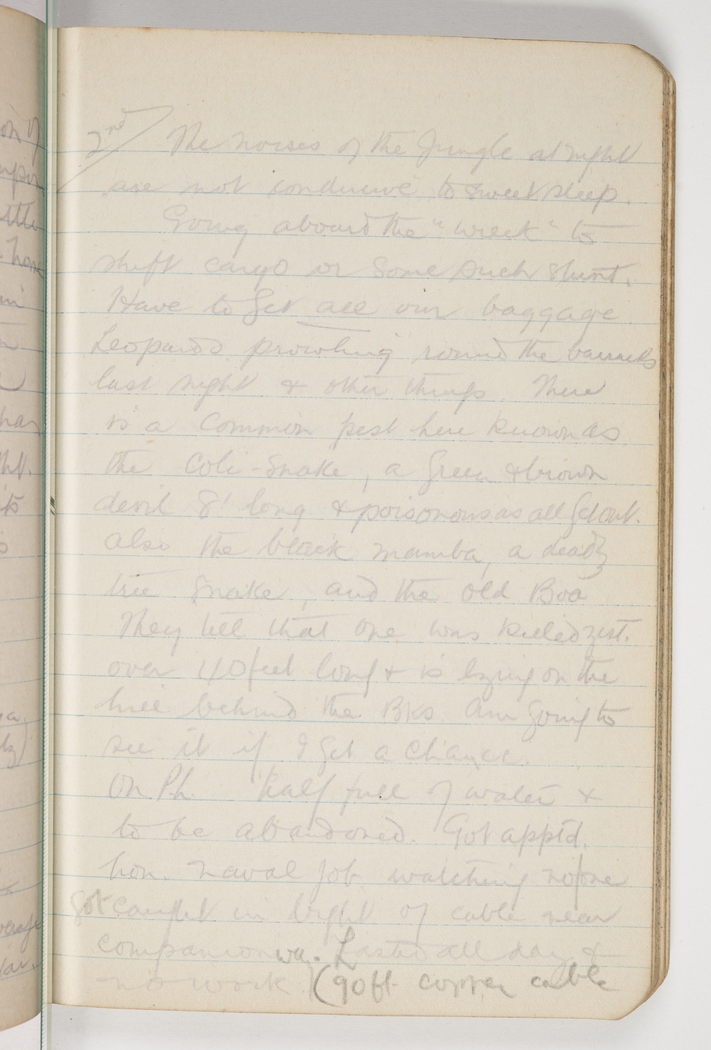 2nd/ The noises of the Jungle at night
are not conducive to sweet sleep.
Going aboard the "wreck" to
shift cargo or some such stunt.
Have to get all our baggage
Leopards prowling round the barracks
last night & other things. There
is a common pest here known as
the Coli-Snake, a green & brown
devil 8' long & poisonous as all get out.
also the black mamba, a deadly
tree snake, and the old Boa
They tell that one was killed yest.
over 40 feet long & is lying on the
hill behind the Bks. Am going to
see it if I get a chance.
On Ph. half full of water &
to be abandoned. Got apptd.
hon. naval job watching no one
got caught in bight of cable near
companionway. Lasted all day &
no work (90 ft. copper cable